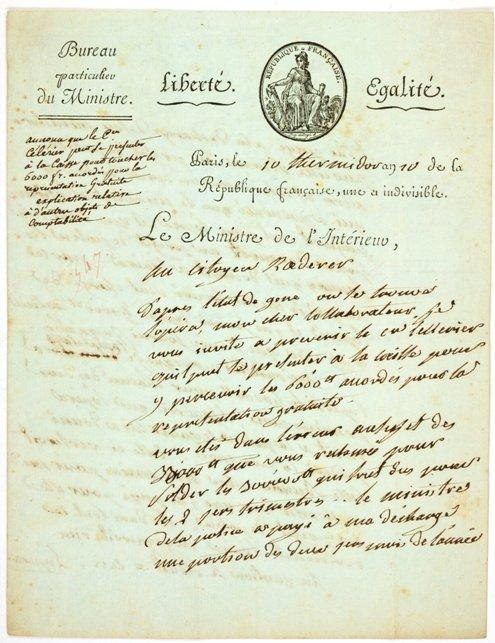 Bureau
particulier
du Ministre.
Liberté.
RÉPUBLIQUE FRANÇAISE.
Egalité.
annonce que le Cen
Célérier peut se présenter
à la Caisse pour toucher les
6000 fr. accordés pour la
représentation gratuite
explication relative
à d'autre objets de
Comptabilité
547
Paris, le 10 thermidor an 10 de la
République française, une et indivisible.
Le Ministre de l'Intérieur,
au citoyen Rœderer
D'après l'état de gene ou se trouve
l'opéra, mon cher collaborateur, je
vous invite a prevenir le cen Cellerier
qu'il peut se presenter à la caisse pour
y percevoir les 6000tt accordés pour la
representation gratuite.
vous etes dans l'erreur au sujet des
que vous reclamés pour
solder les qui sont dus pour
les 2 pers trimestres.. le ministre
de la police a payé à ma décharge
une portion des deux pers mois de l'année